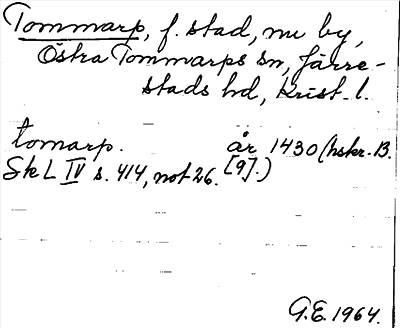 Tommarp, f. stad, nu by,
Östra Tommarps sn, Järre-
stads hd, Krist. l.
tomarp. år 1430 (hskr. B.
Sk L IV s. 414, not 26. [9].)
G.E. 1964.